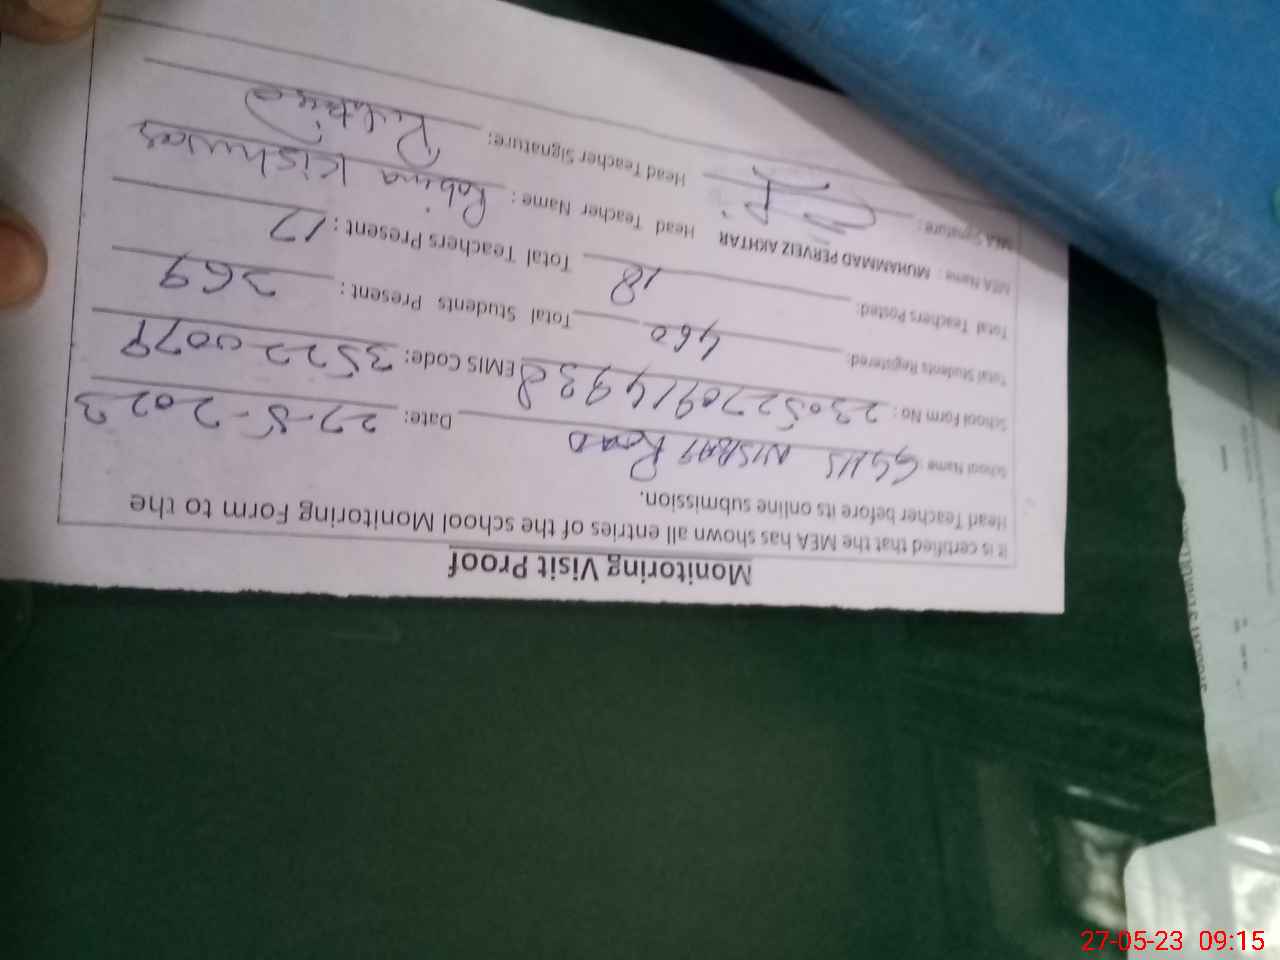 Monitoring Visit Proof
It is certified that the MEA has shown all entries of the school Monitoring Form to the
Head Teacher before its online submission.
School Name GGHS NISBAT ROAD Date: 27-5-2023
School Form No: 2305270914932 EMIS Code: 35220079
Total Students Registered: 460 Total Students Present: 369
Total Teachers Posted: 18 Total Teachers Present: 17
MEA Name: MUHAMMAD PERVEIZ AKHTAR Head Teacher Name: Robina Kishwar
MEA Signature: Head Teacher Signature:
27-05-23 09:15